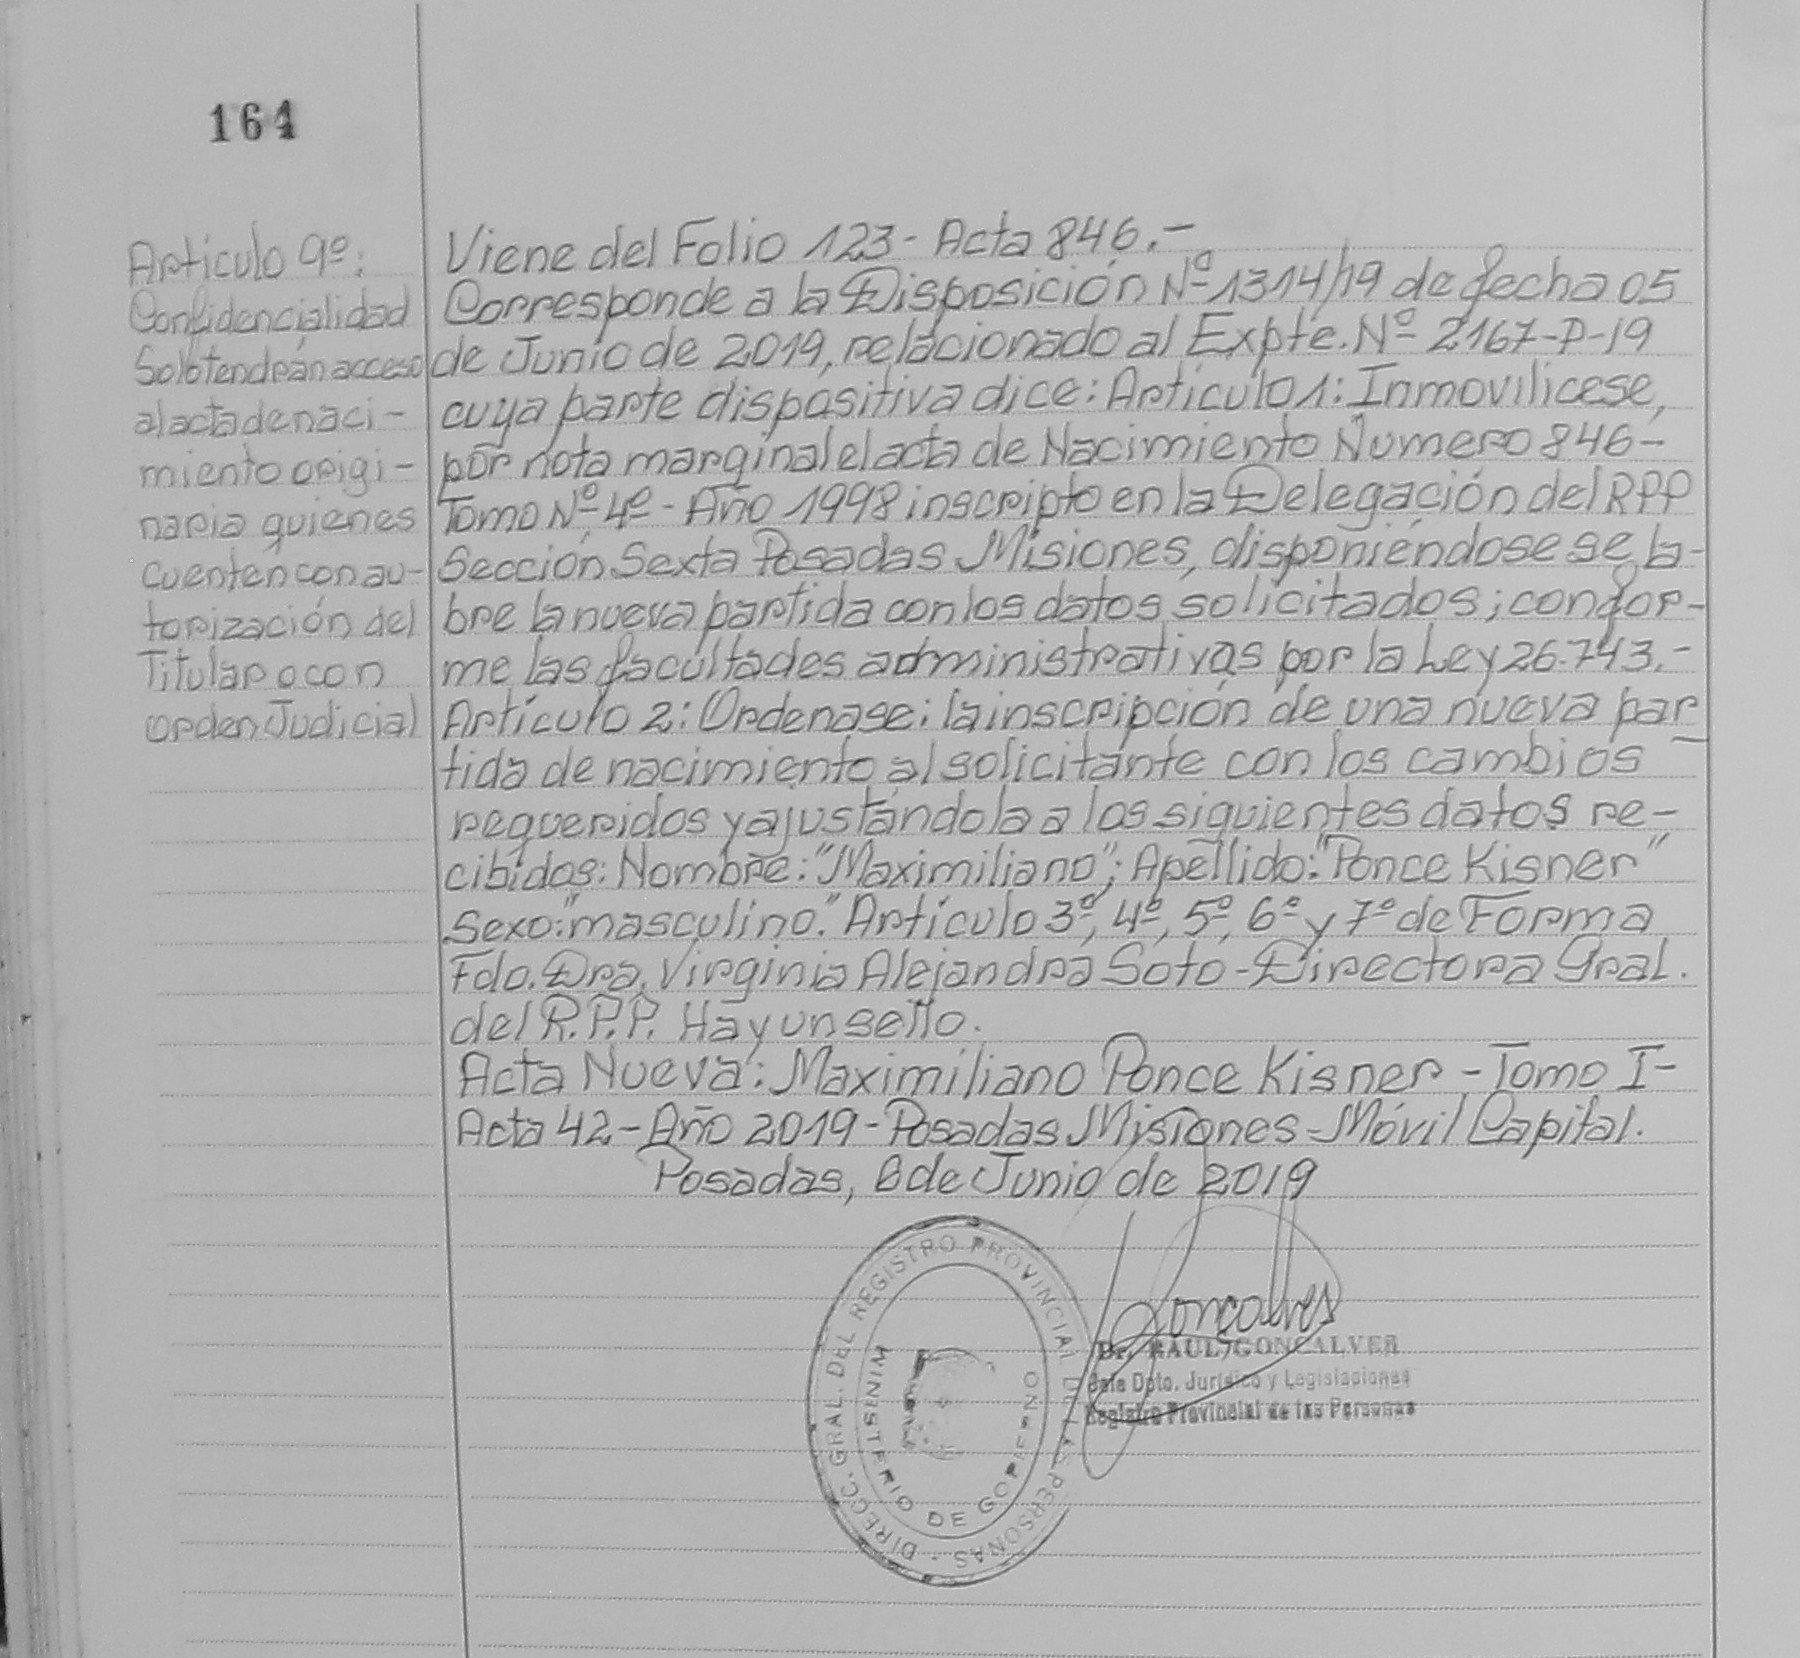 164
Artículo 9º:
Confidencialidad
Solo tendrán acceso
al acta de naci-
miento origi-
naria quienes
cuenten con au-
torización del
Titular o con
orden Judicial
Viene del Folio 123 - Acta 846.-
Corresponde a la Disposición Nº 1314/19 de fecha 05
de Junio de 2019, relacionado al Expte. Nº 2167-P-19
cuya parte dispositiva dice: Artículo 1: Inmovilicese,
por nota marginal el acta de Nacimiento Número 846-
Tomo Nº 4º - Año 1998 inscripto en la Delegación del RPP
Sección Sexta Posadas Misiones, disponiéndose se la-
bre la nueva partida con los datos solicitados; confor-
me las facultades administrativas por la Ley 26.743.-
Artículo 2: Ordenase: la inscripción de una nueva par-
tida de nacimiento al solicitante con los cambios
requeridos y ajustándola a los siguientes datos re-
cibidos: Nombre: "Maximiliano"; Apellido: "Ponce Kisner"
Sexo: "masculino." Artículo 3º, 4º, 5º, 6º y 7º de Forma
Fdo. Dra. Virginia Alejandra Soto - Directora Gral.
del R.P.P. Hay un sello.
Acta Nueva: Maximiliano Ponce Kisner - Tomo I-
Acta 42 - Año 2019 - Posadas Misiones - Móvil Capital.
Posadas, 6 de Junio de 2019
DIRECC. GRAL. DEL REGISTRO PROVINCIAL DE LAS PERSONAS -
MINISTERIO DE GOBIERNO
Goncalves
Dr. RAUL GONCALVER
Jefe Dpto. Jurídico y Legislaciones
Registro Provincial de las Personas